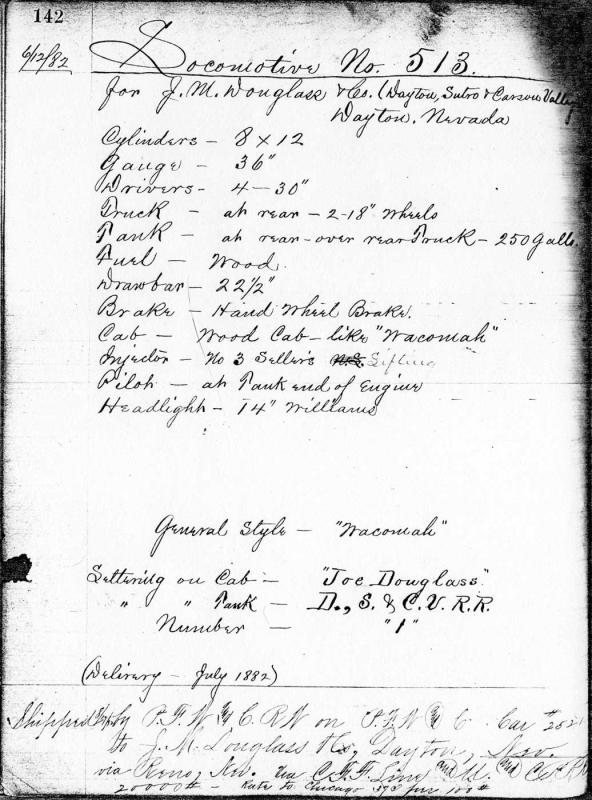 142
6/12/82
Locomotive No. 513.
for J. M. Douglass & Co. (Dayton, Sutro & Carson Valley
Dayton, Nevada
Cylinders - 8 x 12
Gauge - 36"
Drivers - 4 - 30"
Truck - at rear - 2-18" wheels
Tank - at rear - over rear Truck - 250 galls.
Fuel - Wood.
Drawbar - 22 1/2"
Brake - Hand Wheel Brake.
Cab - Wood Cab - like "Wacomah"
Injector - No 3 Sellers Lifting
Pilot - at Tank end of Engine
Headlight - 14" Williams
General Style - "Wacomah"
Lettering on Cab - "Joe Douglass"
" " Tank - D., S. & C. V. R.R.
Number - "1"
(Delivery - July 1882)
Shipped by P. F. W & C. R W on P. F. W & C Car #
to J. M. Douglass & Co, Dayton, Nev.
via Reno, Nev. via C. F. F. Line
20000# - Rate to Chicago per 100#